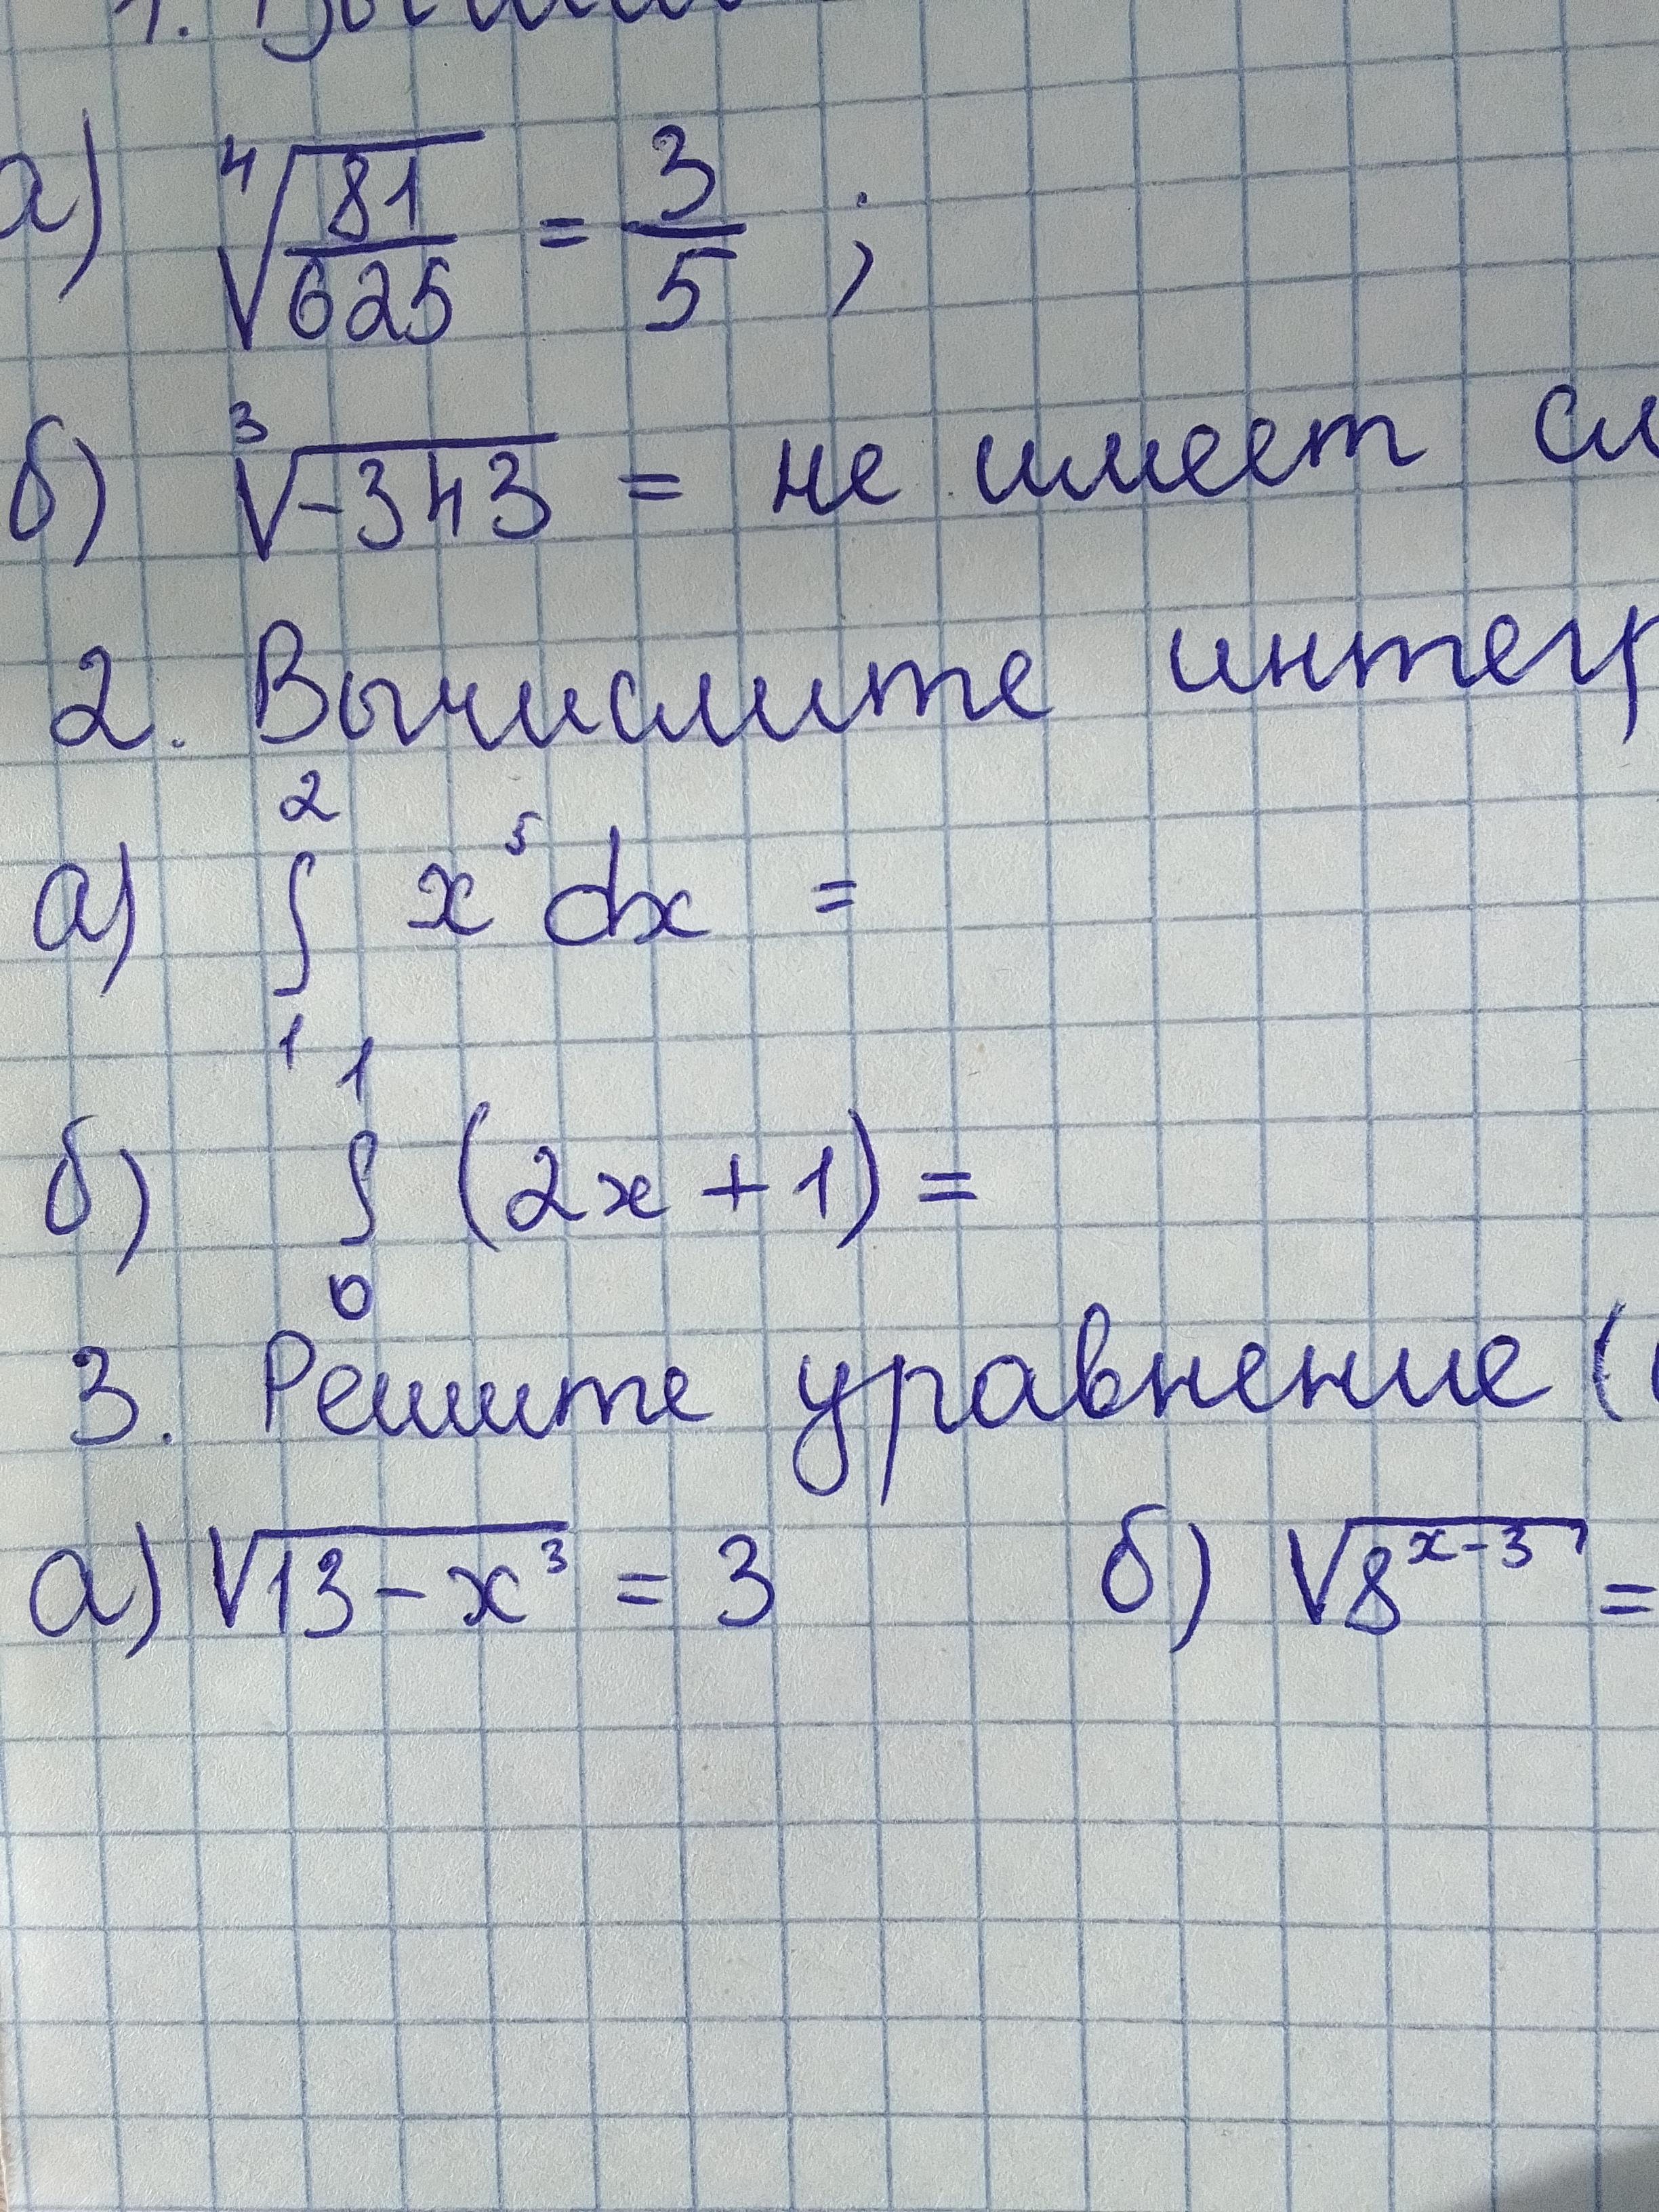 1.
а) ⁴√(81/625) = 3/5 ;
б) ³√(-343) = не имеет
2. Вычислите интегр
а) ∫₁² x⁵ dx =
б) ∫₀¹ (2x + 1) =
3. Решите уравнение (
а) √(13 - x³) = 3 б) √(8ˣ⁻³) =